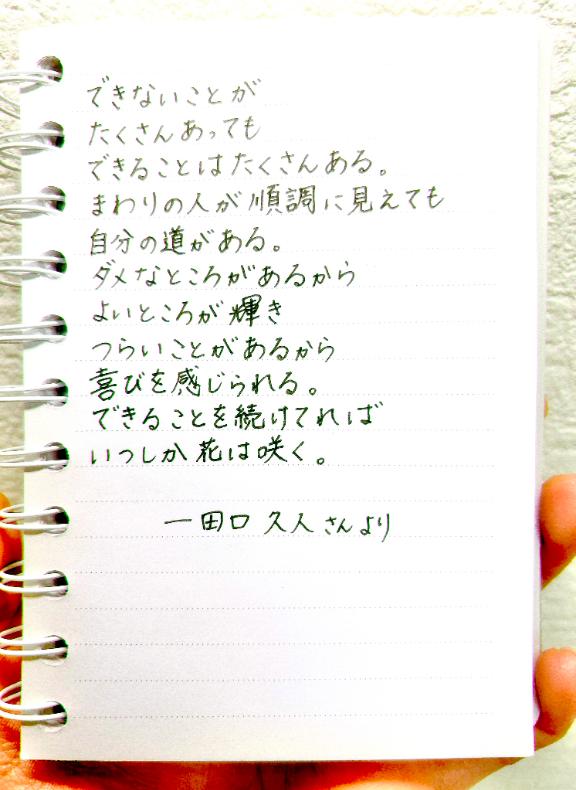 できないことが
たくさんあっても
できることはたくさんある。
まわりの人が順調に見えても
自分の道がある。
ダメなところがあるから
よいところが輝き
つらいことがあるから
喜びを感じられる。
できることを続けてれば
いつしか花は咲く。
一田口久人さんより